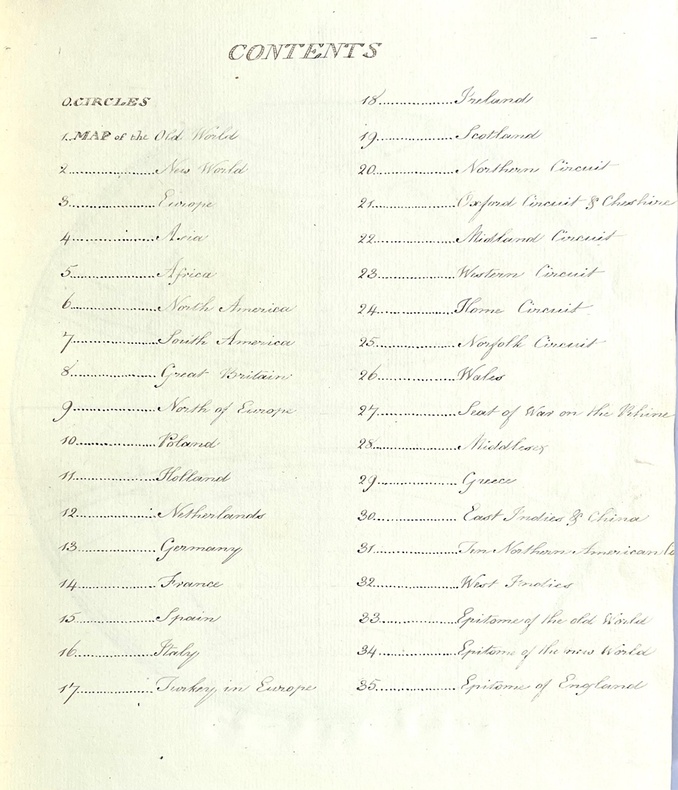 CONTENTS
0.CIRCLES
1..MAP of the Old World
2...............New World
3...............Europe
4...............Asia
5...............Africa
6...............North America
7...............South America
8...............Great Britain
9...............North of Europe
10...............Poland
11...............Holland
12...............Netherlands
13...............Germany
14...............France
15...............Spain
16...............Italy
17...............Turkey in Europe
18...............Ireland
19...............Scotland
20...............Northern Circuit
21...............Oxford Circuit & Cheshire
22...............Midland Circuit
23...............Western Circuit
24...............Home Circuit
25...............Norfolk Circuit
26...............Wales
27...............Seat of War on the Rhine
28...............Middlesex
29...............Greece
30...............East Indies & China
31...............Ten Northern American
32...............West Indies
33...............Epitome of the old World
34...............Epitome of the new World
35...............Epitome of England